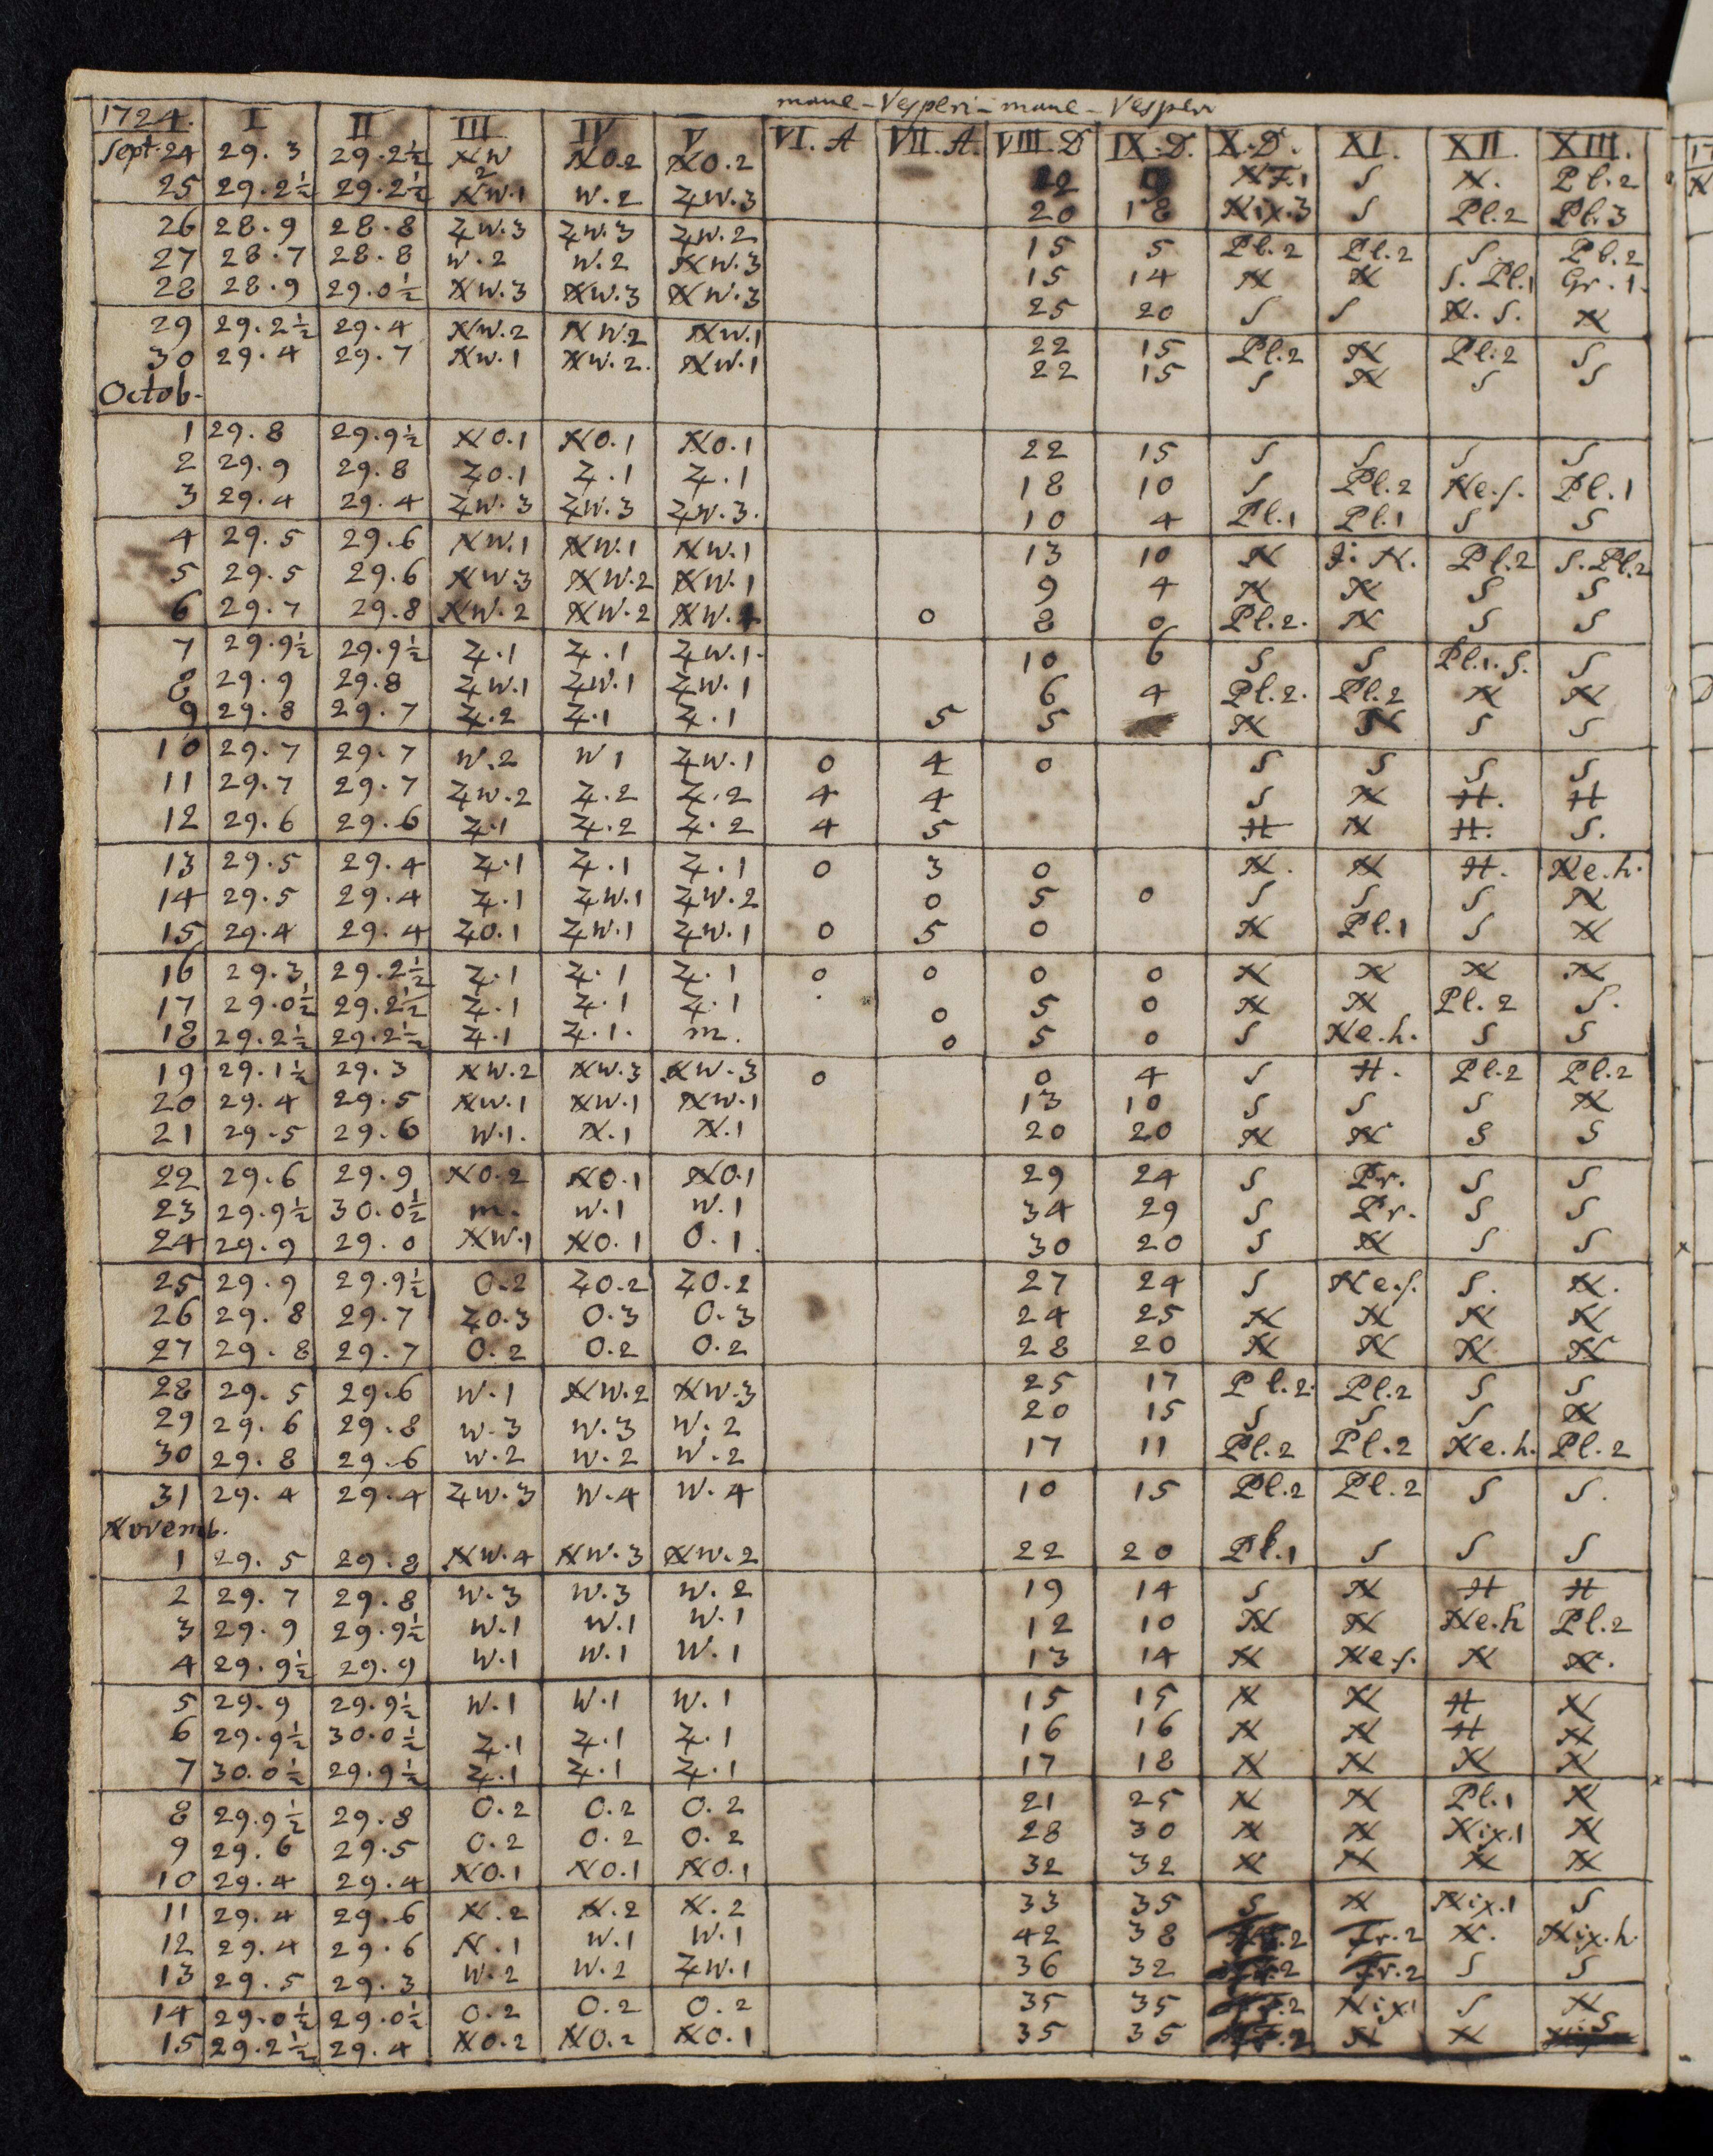 mane - Vesperi - mane - Vesperi
1724. I II III IV V VI. A VII. A. VIII. D IX. D. X. D. XI. XII. XIII.
Sept. 24 29. 3 29. 2½ NW 2 NO. 2 NO. 2 S N. Pl. 2
25 29. 2½ 29. 2½ NW. 1 W. 2 ZW. 3 20 18 Nix. 3 S Pl. 2 Pl. 3
26 28. 9 28. 8 ZW. 3 ZW. 3 ZW. 2 15 5 Pl. 2 Pl. 2 S. Pl. 2
27 28. 7 28. 8 W. 2 W. 2 NW. 3 15 14 N N S. Pl. 1 Gr. 1.
28 28. 9 29. 0½ NW. 3 NW. 3 NW. 3 25 20 S S N. S. N
29 29. 2½ 29. 4 NW. 2 NW. 2 NW. 1 22 15 Pl. 2 N Pl. 2 S
30 29. 4 29. 7 NW. 1 NW. 2. NW. 1 22 15 S N S S
Octob.
1 29. 8 29. 9½ NO. 1 NO. 1 NO. 1 22 15 S S S S
2 29. 9 29. 8 ZO. 1 Z. 1 Z. 1 18 10 S Pl. 2 Ne. s. Pl. 1
3 29. 4 29. 4 ZW. 3 ZW. 3 ZW. 3. 10 4 Pl. 1 Pl. 1 S S
4 29. 5 29. 6 NW. 1 NW. 1 NW. 1 13 10 N N. Pl. 2 S. Pl. 2
5 29. 5 29. 6 NW. 3 NW. 2 NW. 1 9 4 N N S S
6 29. 7 29. 8 NW. 2 NW. 2 NW. 0 8 0 Pl. 2. N S S
7 29. 9½ 29. 9½ Z. 1 Z. 1 ZW. 1. 10 6 S S Pl. 1. S. S
8 29. 9 29. 8 ZW. 1 ZW. 1 ZW. 1 6 4 Pl. 2. Pl. 2 N N
9 29. 8 29. 7 Z. 2 Z. 1 Z. 1 5 5 N N S S
10 29. 7 29. 7 W. 2 W 1 ZW. 1 0 4 0 S S S S
11 29. 7 29. 7 ZW. 2 Z. 2 Z. 2 4 4 S N H. H
12 29. 6 29. 6 Z. 1 Z. 2 Z. 2 4 5 H N H. S.
13 29. 5 29. 4 Z. 1 Z. 1 Z. 1 0 3 0 N. N H. Ne. h.
14 29. 5 29. 4 Z. 1 ZW. 1 ZW. 2 0 5 0 S S S N
15 29. 4 29. 4 ZO. 1 ZW. 1 ZW. 1 0 5 0 N Pl. 1 S N
16 29. 3 29. 2½ Z. 1 Z. 1 Z. 1 0 0 0 0 N N N N
17 29. 0½ 29. 2½ Z. 1 Z. 1 Z. 1 0 5 0 N N Pl. 2 S.
18 29. 2½ 29. 2½ Z. 1 Z. 1. m. 0 5 0 S Ne. h. S S
19 29. 1½ 29. 3 NW. 2 NW. 3 NW. 3 0 0 4 S H. Pl. 2 Pl. 2
20 29. 4 29. 5 NW. 1 NW. 1 NW. 1 13 10 S S S N
21 29. 5 29. 6 W. 1. N. 1 N. 1 20 20 N N S S
22 29. 6 29. 9 NO. 2 NO. 1 NO. 1 29 24 S Pr. S S
23 29. 9½ 30. 0½ m. W. 1 W. 1 34 29 S Pr. S S
24 29. 9 29. 0 NW. 1 NO. 1 O. 1. 30 20 S N S S
25 29. 9 29. 9½ O. 2 ZO. 2 ZO. 2 27 24 S Ne. s. S. N.
26 29. 8 29. 7 ZO. 3 O. 3 O. 3 24 25 N N N N
27 29. 8 29. 7 O. 2 O. 2 O. 2 28 20 N N N N
28 29. 5 29. 6 W. 1 NW. 2 NW. 3 25 17 Pl. 2. Pl. 2 S S
29 29. 6 29. 8 W. 3 W. 3 W. 2 20 15 S S S N
30 29. 8 29. 6 W. 2 W. 2 W. 2 17 11 Pl. 2 Pl. 2 Ne. h. Pl. 2
31 29. 4 29. 4 ZW. 3 W. 4 W. 4 10 15 Pl. 2 Pl. 2 S S.
Novemb.
1 29. 5 29. 8 NW. 4 NW. 3 NW. 2 22 20 Pl. 1 S S S
2 29. 7 29. 8 W. 3 W. 3 W. 2 19 14 S N H H
3 29. 9 29. 9½ W. 1 W. 1 W. 1 12 10 N N Ne. h Pl. 2
4 29. 9½ 29. 9 W. 1 W. 1 W. 1 13 14 N Ne. s. N N.
5 29. 9 29. 9½ W. 1 W. 1 W. 1 15 15 N N H N
6 29. 9½ 30. 0½ Z. 1 Z. 1 Z. 1 16 16 N N H N
7 30. 0½ 29. 9½ Z. 1 Z. 1 Z. 1 17 18 N N N N
8 29. 9½ 29. 8 O. 2 O. 2 O. 2 21 25 N N Pl. 1 N
9 29. 6 29. 5 O. 2 O. 2 O. 2 28 30 N N Nix. 1 N
10 29. 4 29. 4 NO. 1 NO. 1 NO. 1 32 32 N N N N
11 29. 4 29. 6 N. 2 N. 2 N. 2 33 35 S N Nix. 1 S
12 29. 4 29. 6 N. 1 W. 1 W. 1 42 38 Fr. 2 N. Nix. h.
13 29. 5 29. 3 W. 2 W. 2 ZW. 1 36 32 Fr. 2 S S
14 29. 0½ 29. 0½ O. 2 O. 2 O. 2 35 35 Nix 1 S N
15 29. 2½ 29. 4 NO. 2 NO. 2 NO. 1 35 35 N N S